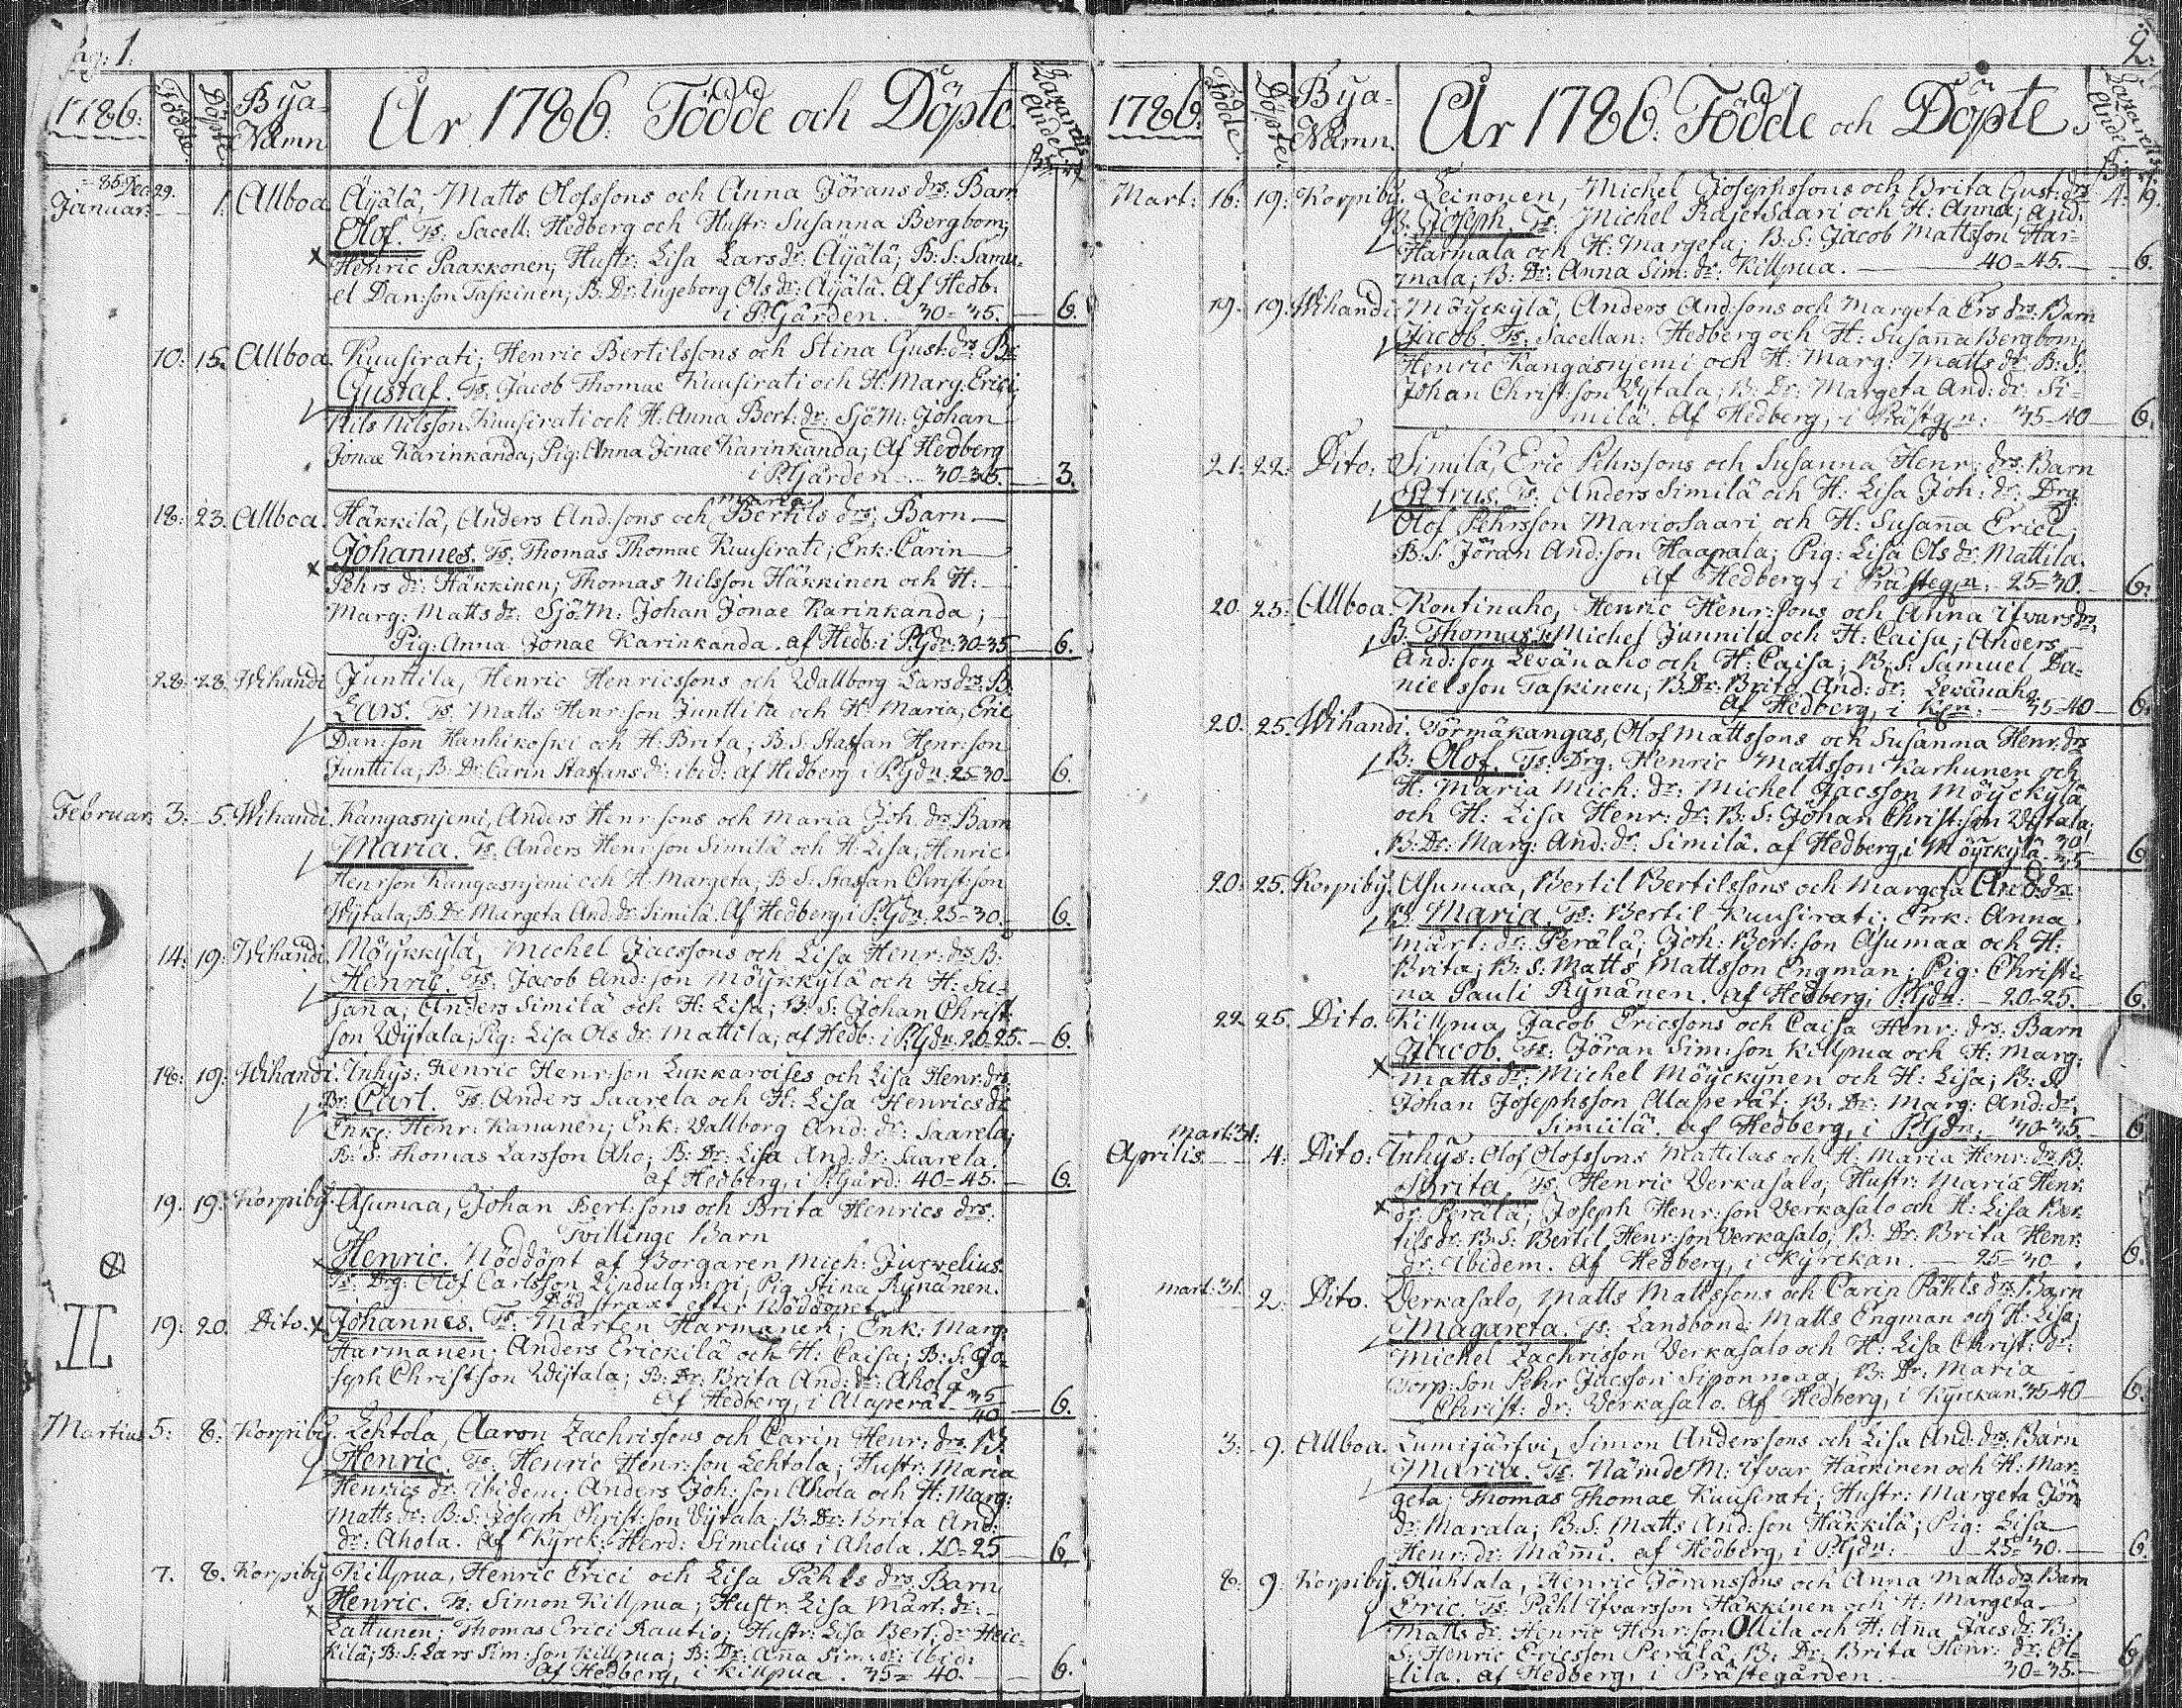 Pag: 1.
1786. Födde. Döpte. Bya-Namn. År 1786. Födde och Döpte. Lazaretts Andel.
85 Dec: 29.
Januar: 1. Allboa. Äÿälä, Matts Olofssons och Anna Jörans drs: Barn
Olof. Ts: Sacell: Hedberg och Hustr: Susanna Bergbom;
Henric Paakkonen; Hustr: Lisa Lars dr: Äÿälä; B: S: Samu-
el Dan:son Taskinen; B: Dr: Ingeborg Ols dr: Äÿälä. Af Hedb:
i P:Gården. 30=35. 6.
10: 15. Allboa. Kuusirati; Henric Bertilssons och Stina Gust: drs: Br:
Gustaf. Ts: Jacob Thomae Kuusirati och H: Marg. Erici;
Nils Nilsson Kuusirati och H: Anna Bert: dr: SjöM: Johan
Jonae Karinkanda; Pig: Anna Jonae Karinkanda; Af Hedberg
i P:Gården. 30=35. 3.
Maria
18: 23. Allboa. Häkkilä, Anders And:sons och Bertils drs: Barn
Johannes. Ts: Thomas Thomae Kuusirati; Enk: Carin
Pehrs dr: Häkkinen; Thomas Nilsson Häkkinen och H:
Marg: Matts dr: SjöM: Johan Jonae Karinkanda;
Pig: Anna Jonae Karinkanda. af Hedb: i P:Gdn: 30=35 6.
28: 28. Wihandi Junttila, Henric Henricssons och Wallborg Lars drs: B:
Lars. Ts: Matts Henr:son Junttila och H: Maria; Eric
Dan:son Hanhikoski och H: Brita; B: S: Staffan Henr:son
Junttila; B: Dr: Carin Staffans dr: ibid: af Hedberg i P:Gdn: 25=30 6.
Februar. 3: 5. Wihandi. Kangasnjemi, Anders Henr:sons och Maria Joh. drs: Barn
Maria. Ts: Anders Henr:son Similä och H: Lisa; Henric
Henr:son Kangasnjemi och H: Margeta; B: S: Staffan Christ:son
Wÿtala; B: Dr: Margeta And: dr: Similä. Af Hedberg, i P:Gdn: 25=30. 6.
14: 19: Wihandi. Möÿkkÿlä, Michel Jacssons och Lisa Henr: drs: B:
Henric. Ts: Jacob And:son Möÿkkÿlä och H: Su-
sana; Anders Similä och H: Lisa; B: S: Johan Christ-
son Wÿtala; Pig: Lisa Ols dr: Mattila; af Hedb: i P:Gdn: 20=25. 6.
18: 19: Wihandi. Inhÿs: Henric Henr:son Lukkaroises och Lisa Henr: drs:
Br: Carl. Ts: Anders Saarela och H: Lisa Henrics dr:
Enkl: Henr: Kananen; Enk: Vallborg And: dr: Saarela;
B: S: Thomas Larsson Aho; B: Dr: Lisa And: dr: Saarela.
af Hedberg, i P:Gård: 40=45. 6.
19. 19: Korpibÿ. Asumaa, Johan Bert:sons och Brita Henrics drs:
Tvillinge Barn
Henric. Nöddöpt af Borgaren Mich: Juswelius.
Ts: Drg: Olof Carlsson; Pig: Stina Rÿnänen.
Död straxt efter Nöddopet.
II
19: 20. Dito. Johannes. Ts: Mårten Harmanen; Enk: Marg:
Harmanen; Anders Erickilä och H: Caisa; B: S: Jo-
seph Christ:son Wÿtala; B: Dr: Brita And: dr: Ahola
af Hedberg, i Alaperät. 35=40 6.
Martius 5: 8: Korpibÿ. Lehtola, Aaron Zachrissons och Carin Henr: drs: B:
Henric. Ts: Henric Henr:son Lehtola; Hustr: Maria
Henrics dr: Ibidem; Anders Joh:son Ahola och H: Marg:
Matts dr: B: S: Joseph Christ:son Vÿtala; B: Dr: Brita And:
dr: Ahola. Af Kÿrck: Herd: Simelius i Ahola. 20=25 6.
7. 8. Korpibÿ Killpua, Henric Erici och Lisa Påhls drs: Barn
Henric. Ts: Simon Killpua; Hustr: Lisa Mårt: dr:
Lattunen; Thomas Erici Rautio; Hustr: Lisa Bert: dr: Heic-
kilä; B: S: Lars Sim:son Killpua; B: Dr: Anna Sim: dr: Ibid:
af Hedberg, i Killpua. 35=40. 6.
2.
1786. Födde. Döpte. Bya-Namn. År 1786. Födde och Döpte. Lazaretts Andel.
Mart: 16: 19: Korpibÿ. Leinonen, Michel Josephssons och Brita Gust: drs 4. 19.
B: Joseph. Ts: Michel Rajersaari och H: Anna; And:
Harmala och H: Margeta; B: S: Jacob Mattsson Har-
mala; B: Dr: Anna Sim: dr: Killpua. 40=45. 6.
19. 19: Wihandi. Möÿckÿlä, Anders And:sons och Margeta Ers drs: Barn
Jacob. Ts: Sacellan: Hedberg och H: Susana Bergbom;
Henric Kangasnjemi och H: Marg: Matts dr: B: S:
Johan Christ:son Vÿtala; B: Dr: Margeta And: dr: Si-
milä. Af Hedberg, i Prästg:n: 35=40 6.
21: 22: Dito: Similä, Eric Pehrssons och Susanna Henr: drs: Barn
Petrus. Ts: Anders Similä och H: Lisa Joh: dr: Drg:
Olof Pehrsson Mariosaari och H: Susana Erici;
B: S: Jöran And:son Haapala; Pig: Lisa Ols dr: Mattila.
Af Hedberg, i Prästeg:n: 25=30. 6.
20: 25: Allboa. Kontinaho, Henric Henr:sons och Anna Ifvars drs
B: Thomas. Michel Junnila och H: Caisa; Anders
And:son Levänaho och H: Caisa; B: S: Samuel Da-
nielsson Taskinen; B: Dr: Brita And: dr: Levänaho.
Af Hedberg, i K:an: 35=40 6.
20. 25. Wihandi. Törmäkangas, Olof Mattssons och Susanna Henr: drs
B: Olof. Ts: Drg: Henric Mattsson Karhunen och
H: Maria Mich: dr: Michel Jacsson Möÿckÿlä
och H: Lisa Henr: dr: B: S: Johan Christ:son Vÿtala;
B: Dr: Marg: And: dr: Similä. af Hedberg, i Möÿckÿlä 30=35 6.
20: 25. Korpibÿ. Asumaa, Bertil Bertilssons och Margeta And: drs:
B: Maria. Ts: Bertil Kuusirati; Enk: Anna
Mårt: dr: Perälä; Joh: Bert:son Asumaa och H:
Brita; B: S: Matts Mattsson Engman; Pig: Christi-
na Pauli Rÿnänen. af Hedberg, i P:Gdn: 20=25. 6.
22 25. Dito. Killpua, Jacob Ericssons och Caisa Henr: drs: Barn
Jacob. Ts: Jöran Sim:son Killpua och H: Marg:
Matts dr: Michel Möÿckÿnen och H: Lisa; B: S:
Johan Josephsson Alaperät; B: Dr: Marg: And: dr:
Similä. af Hedberg, i P:Gdn: 30=35. 6
Mart: 31:
Aprilis 4: Dito: Inhÿs: Olof Olofssons Mattilas och H: Maria Henr: dr: B:
Brita. Ts: Henric Verkasalo; Hustr: Maria Henr:
dr: Perälä; Joseph Henr:son Verkasalo och H: Lisa Ber-
tils dr: B: S: Bertil Henr:son Verkasalo; B: Dr: Brita Henr:
dr: Ibidem. Af Hedberg, i Kÿrckan. 25=30. 6.
Mart: 31. 2. Dito. Verkasalo, Matts Mattssons och Carin Påhls drs: Barn
Magareta. Ts: Landbond: Matts Engman och H: Lisa;
Michel Zachrisson Verkasalo och H: Lisa Christ: dr:
Torp:son Pehr Jacsson Siponmaa; B: Dr: Maria
Christ: dr: Verkasalo. Af Hedberg, i Kÿrckan 35=40 6.
3: 9. Allboa. Lumijärfvi, Simon Anderssons och Lisa And: drs: Barn
Maria. Ts: NämdeM: Ifvar Häckinen och H: Mar-
geta; Thomas Thomae Kuusirati; Hustr: Margeta Jör:
dr: Marala; B: S: Matts And:son Häkkilä; Pig: Lisa
Henr: dr: Mämi. af Hedberg, i P:Gdn: 25=30. 6.
8: 9: Korpibÿ. Huhtala, Henric Jöranssons och Anna Matts drs: Barn
Eric. Ts: Påhl Ifvarsson Häkkinen och H: Margeta
Matts dr: Henric Henr:son Ollila och H: Ana Jacs dr: B:
S: Henric Ericsson Perälä; B: Dr: Brita Henr: dr: Ol-
lila. af Hedberg, i Prästegården. 30=35. 6